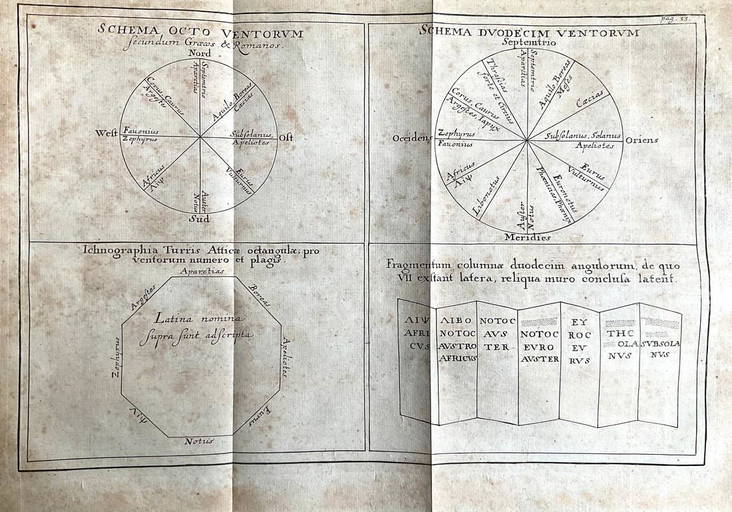 pag. 55.
SCHEMA OCTO VENTORVM
secundum Græcos & Romanos.
Nord
Septemtrio
Aparctias
Aquilo, Boreas
Cæcias
Subsolanus,
Apeliotes
Ost
Eurus
Vulturnus
Auster
Notus
Sud
Africus
Λιψ
West
Favonius
Zephyrus
Corus, Caurus
Argestes
SCHEMA DVODECIM VENTORVM
Septemtrio
Septemtrio
Aparctias
Aquilo, Boreas
Meses
Cæcias
Subsolanus, Solanus
Apeliotes
Oriens
Eurus
Vulturnus
Euronotus
Phœnicias, Phœnix
Auster
Notus
Meridies
Libonotus
Africus
Λιψ
Occidens
Zephyrus
Favonius
Corus, Caurus
Argestes, Iapyx
Thrascias
forte et Circius
Ichnographia Turris Atticæ octangulæ, pro
ventorum numero et plagis.
Aparctias
Boreas
Apeliotes
Eurus
Notus
Λιψ
Zephyrus
Argestes
Latina nomina
supra sunt adscripta
Fragmentum columnæ duodecim angulorum, de quo
VII exstant latera, reliqua muro conclusa latent.
ΛΙΨ
AFRI
CVS
ΛΙΒΟ
NOTOC
AVSTRO
AFRICVS
NOTOC
AVS
TER
NOTOC
EVRO
AVSTER
EY
ROC
EV
RVS
THC
OLA
NVS
SVBSOLA
NVS